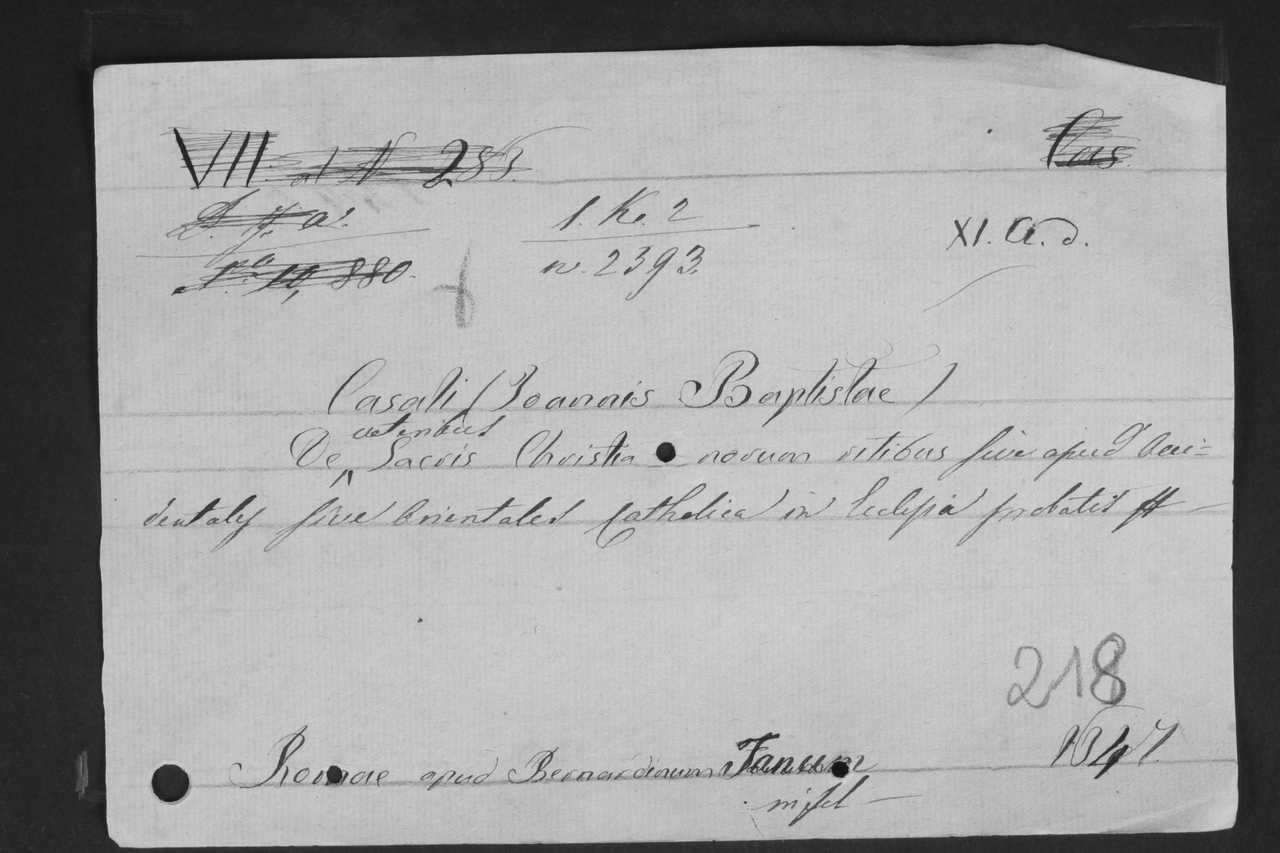 VII 283.
Cas
a.
1. K. 2
XI. A. d.
880.
n. 2393.
Casali (Joannis Baptistae)
veteribus
De Sacris Christianorum ritibus sive apud Occi=
dentales sive Orientales Catholica in Ecclesia probatis
218
Romae apud Bernardinum Tanum
1647.